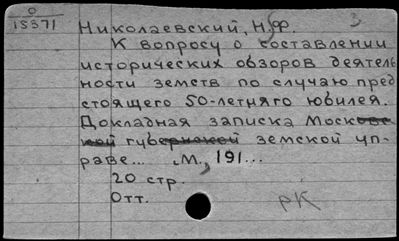 0
15371
Николаевский, Н.Ф.
К вопросу о составлении
исторических обзоров деятель
ности земств по случаю пред
стоящего 50-летняго юбилея.
Докладная записка Московс
кой губернской земской уп-
раве... М., 191...
20 стр.
Отт.
РК